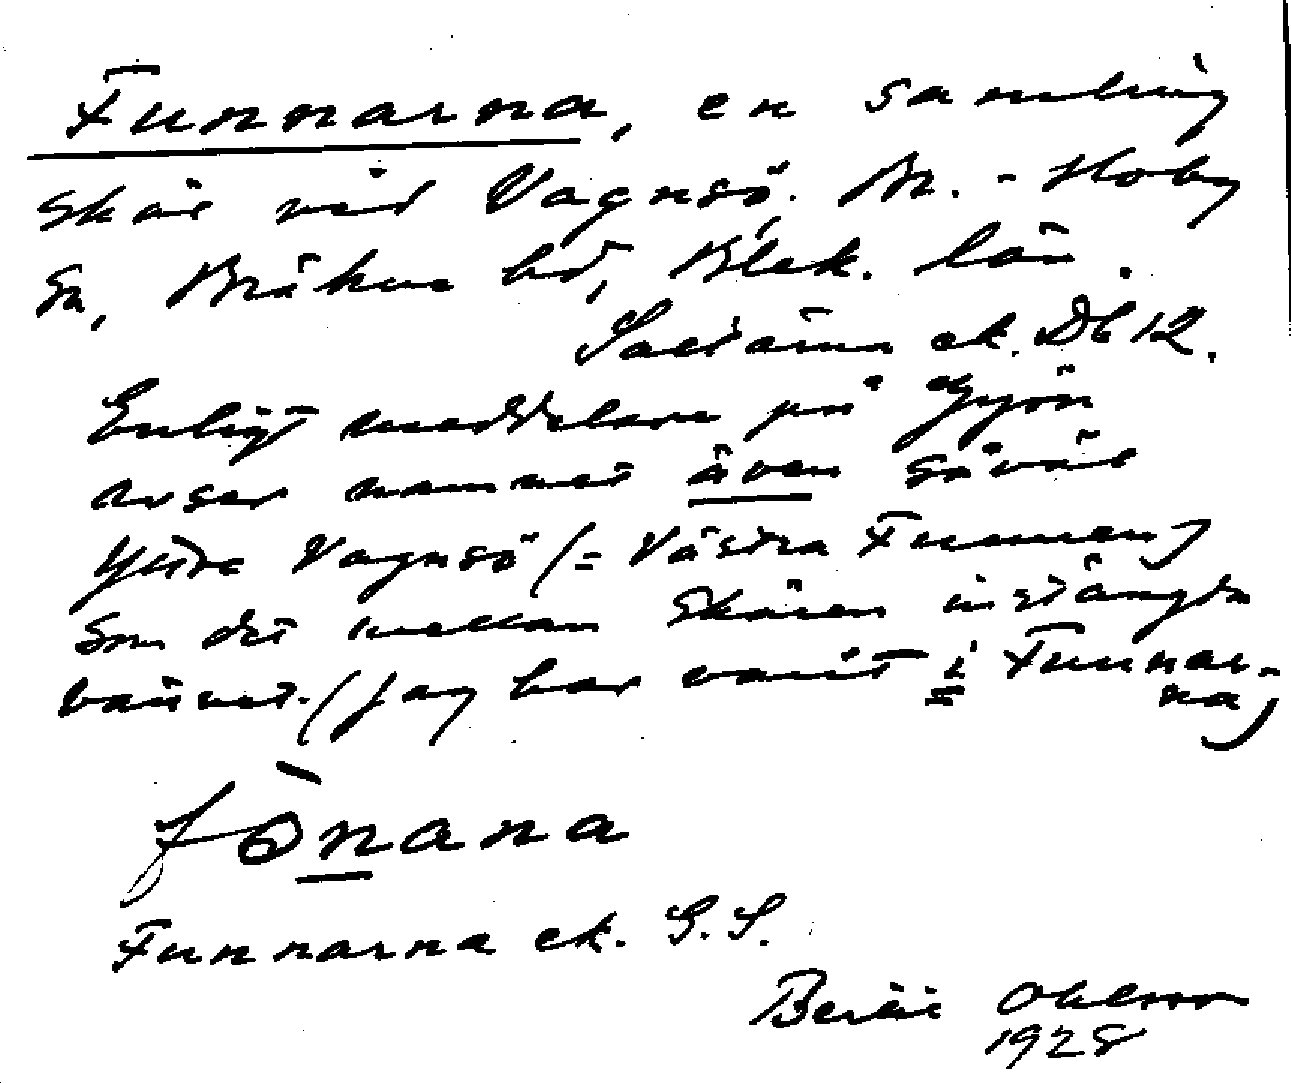 Funnarna, en samling
skär vid Vagnsö, Br.-Hoby
sn, Bräkne hd, Blek. län.
ek. Db 12.
Enligt meddelare på Gyön
avser namnet även såväl
Yttre Vagnsö (= Västra Funnen)
som det mellan skären instängda
vattnet. (Jag har varit i Funnar-
na)
fònana
Funnarna ek. G. S.
Bertil Ohlsson
1928